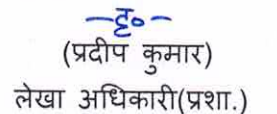 —ह०—
(प्रदीप कुमार)
लेखा अधिकारी(प्रशा.)